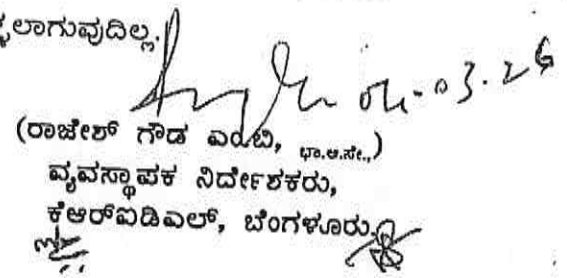 ಲಾಗುವುದಿಲ್ಲ.
04-03-26
(ರಾಜೇಶ್ ಗೌಡ ಎಂ.ಬಿ, ಭಾ.ಆ.ಸೇ.,)
ವ್ಯವಸ್ಥಾಪಕ ನಿರ್ದೇಶಕರು,
ಕೆಆರ್‌ಐಡಿಎಲ್, ಬೆಂಗಳೂರು.